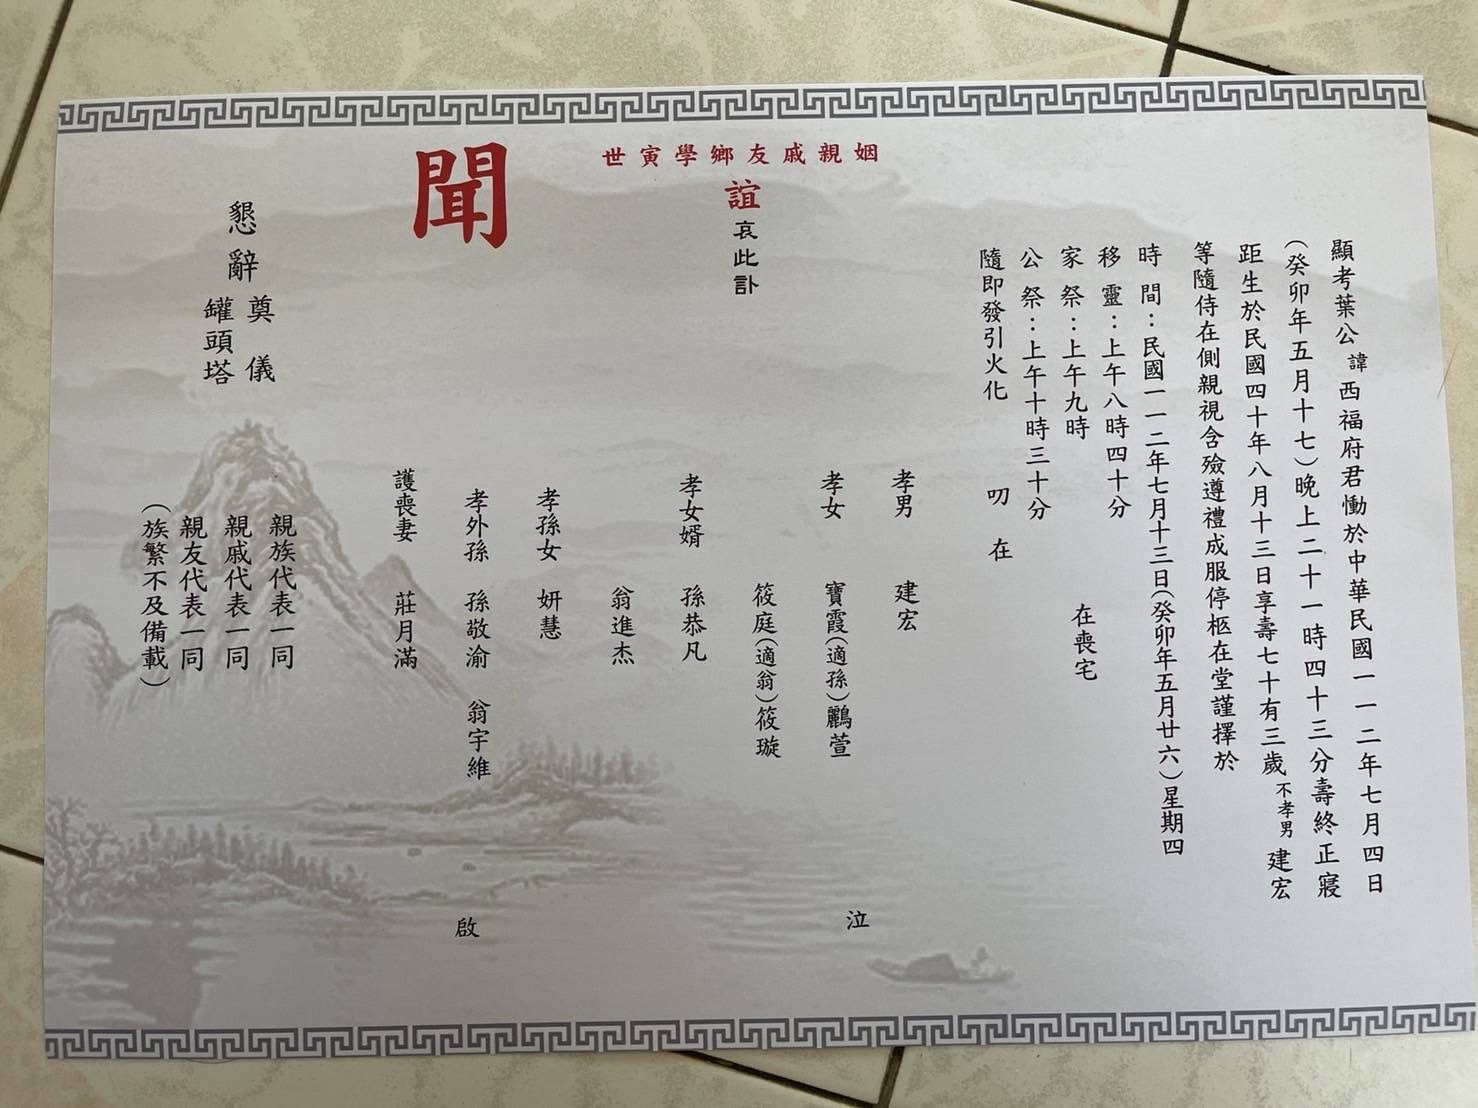 顯考葉公諱西福府君慟於中華民國一一二年七月四日
(癸卯年五月十七)晚上二十一時四十三分壽終正寢
距生於民國四十年八月十三日享壽七十有三歲不孝男建宏
等隨侍在側親視含殮遵禮成服停柩在堂謹擇於
時間:民國一一二年七月十三日(癸卯年五月廿六)星期四
移靈:上午八時四十分
家祭:上午九時 在喪宅
公祭:上午十時三十分
隨即發引火化 叨在
世寅學鄉友戚親姻
誼哀此訃
聞
孝男 建宏
孝女 寶霞(適孫)鸝萱
筱庭(適翁)筱璇
孝女婿 孫恭凡
翁進杰
孝孫女 妍慧
孝外孫 孫敬渝 翁宇維
護喪妻 莊月滿
泣
啟
懇辭奠儀
罐頭塔
親族代表一同
親戚代表一同
親友代表一同
(族繁不及備載)